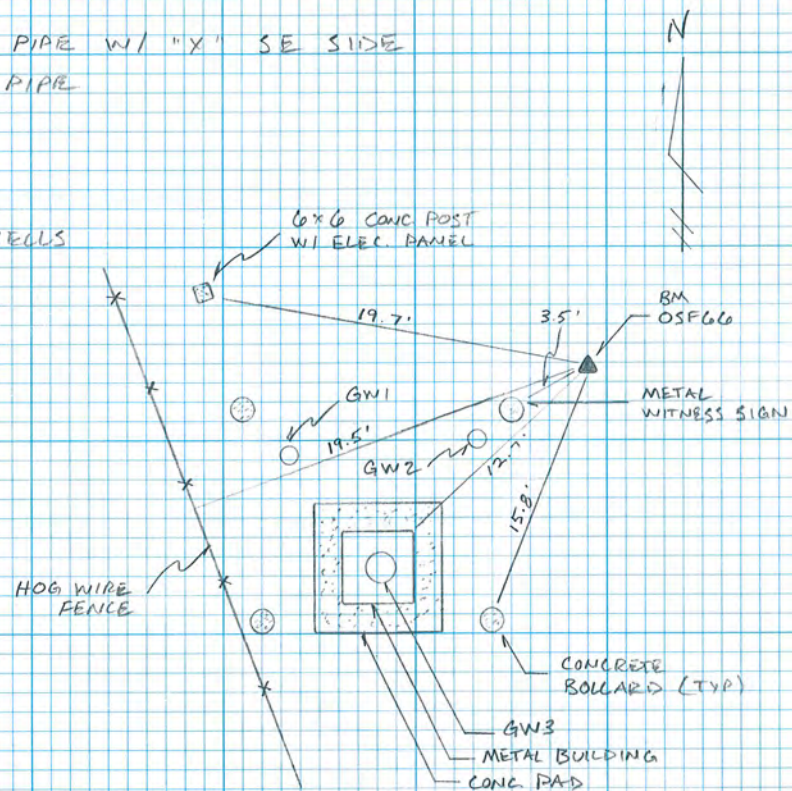 PIPE W/ "X" SE SIDE
PIPE
N
6x6 CONC POST
W/ ELEC. PANEL
19.7'
3.5'
BM
OSF66
GW1
METAL
WITNESS SIGN
19.5'
GW2
12.7'
15.8'
HOG WIRE
FENCE
CONCRETE
BOLLARD (TYP)
GW3
METAL BUILDING
CONC PAD